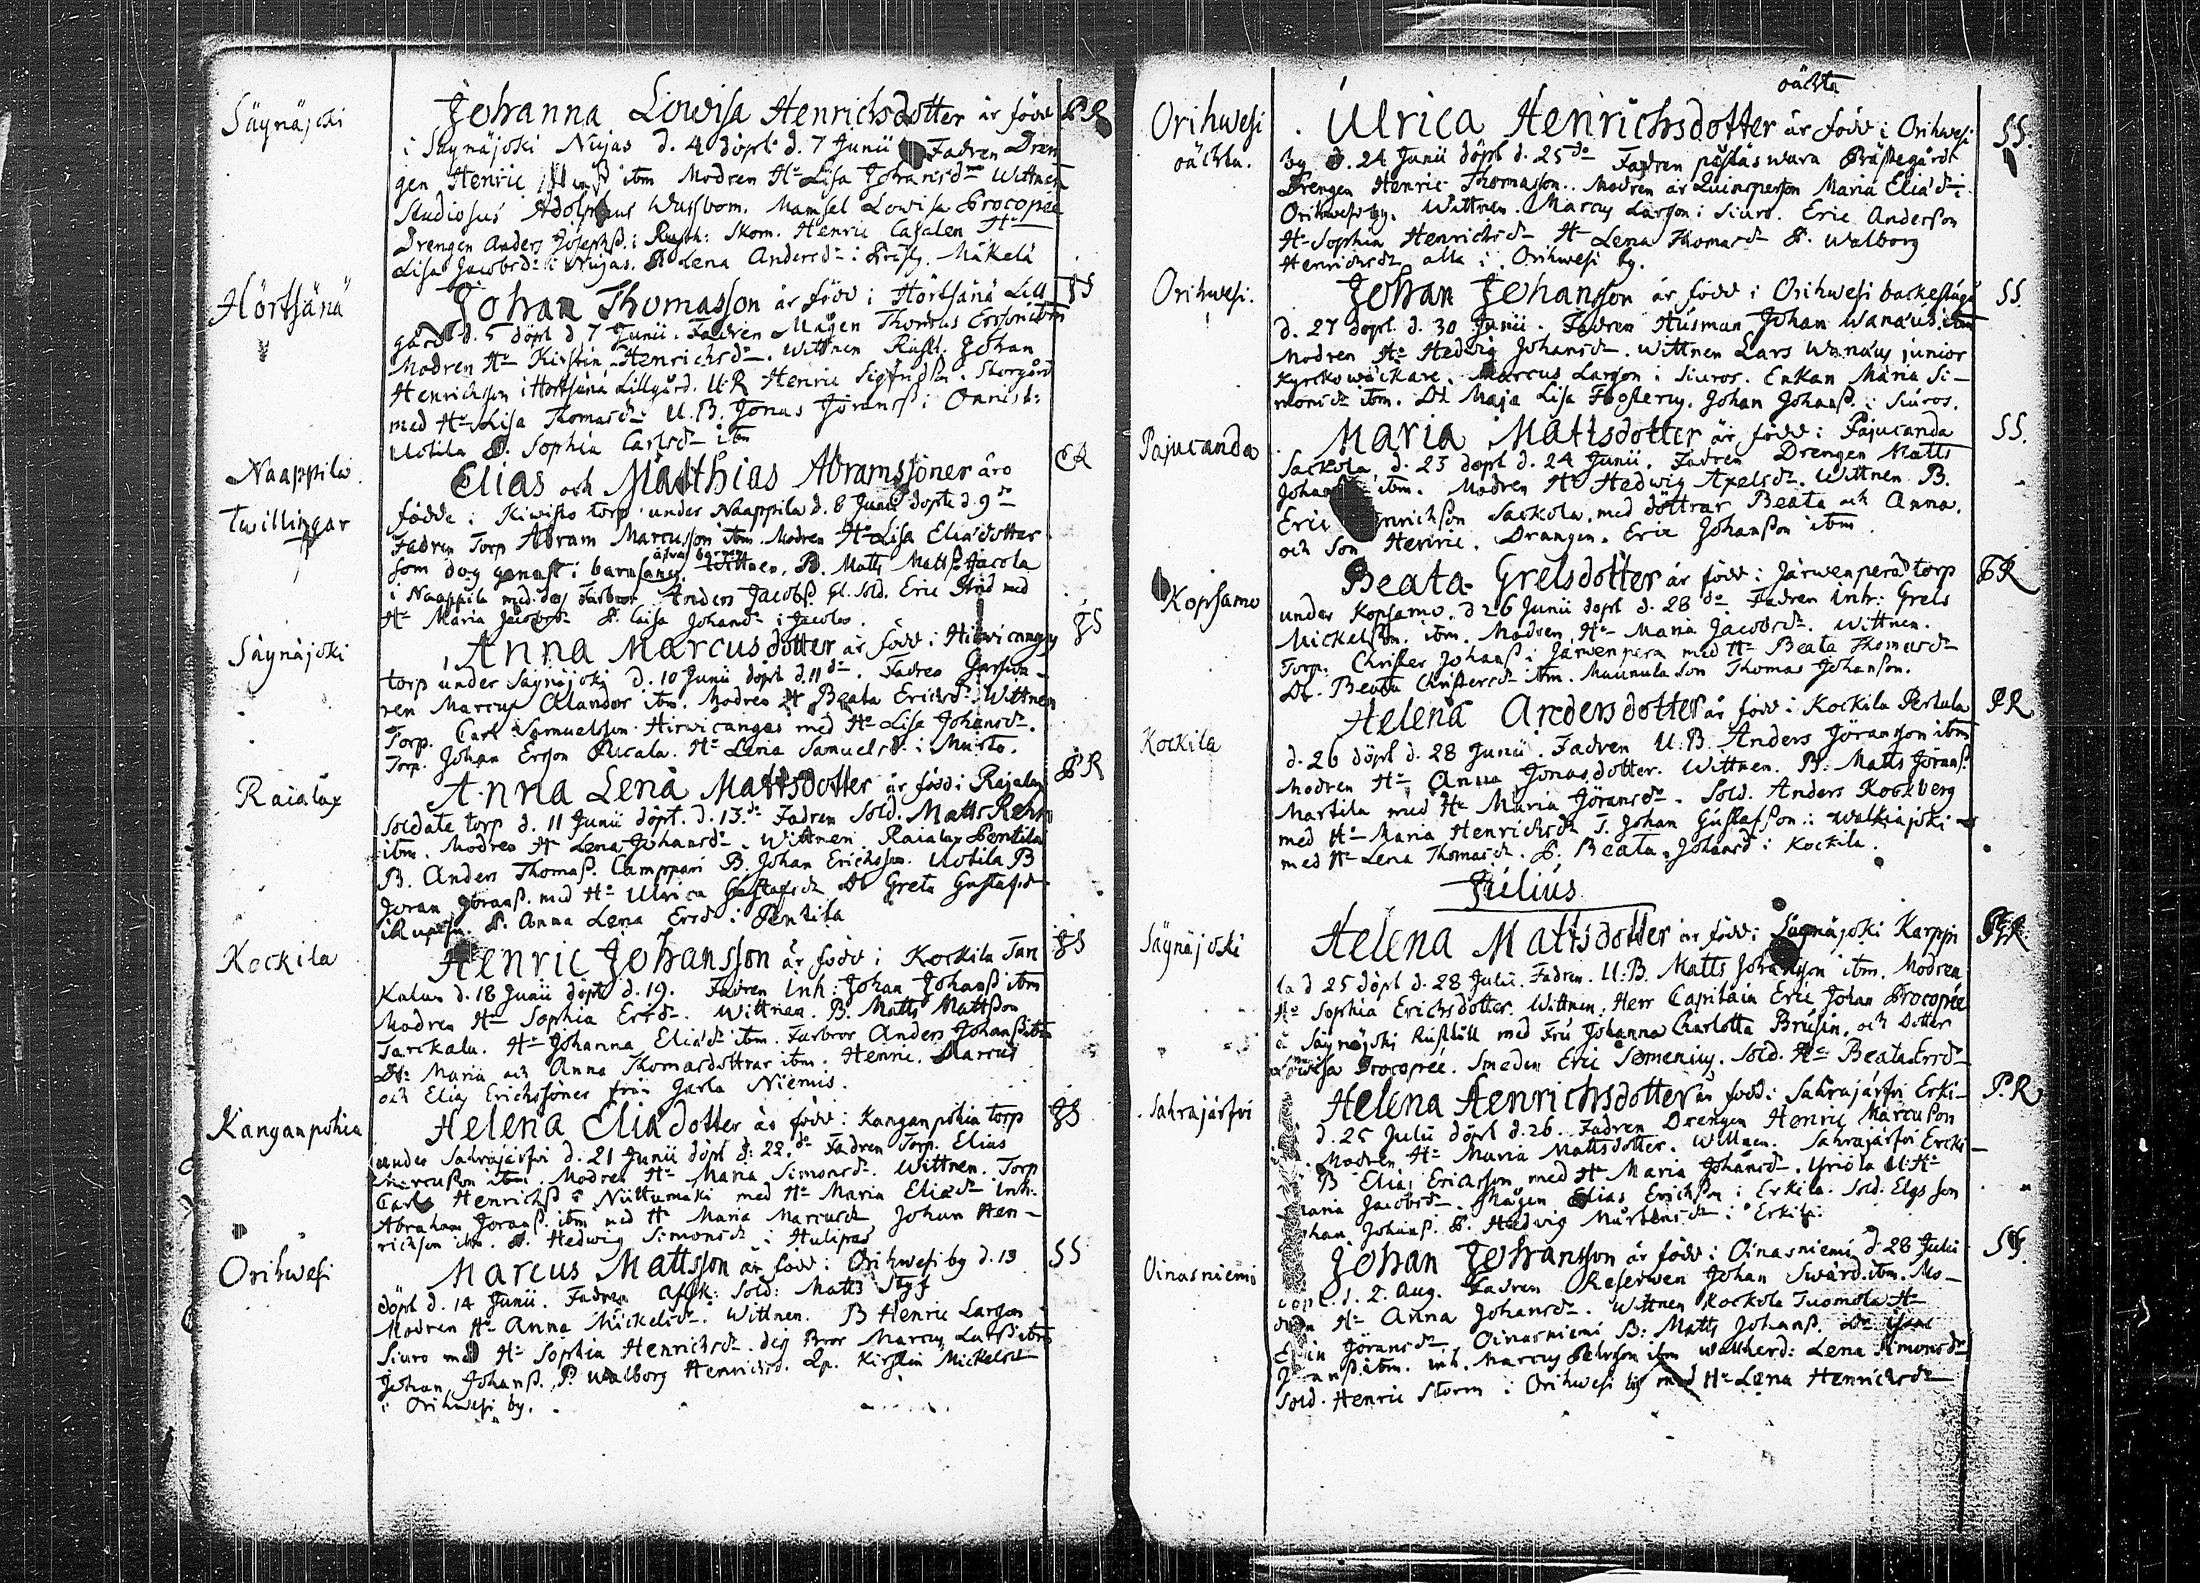 Säynäjoki
Johanna Lowisa Henrichsdotter är född PR
i Säynäjoki Nujas d. 4 döpt d. 7 Junii Fadren Dren
gen Henric itm Modren Hu Lisa Johansdr Wittnen
Studiosus Adolphus Mamsel Lowisa Procopée
Drengen Anders Josephss. i Rusth: Skom. Henric Casalen Hu
Lisa Jacobsdr i Nujas. P. Lena Andersdr i Prästg. Mäkelä
Hörtsänä
Johan Thomasson är född i Hörtsänä Lill JS
gård d. 5 döpt d 7 Junii. Fadren Mågen Thomas Ersson itm
Modren Hu Kirstin Henrichsdr. Wittnen Rusth. Johan
Henrichsson i Hörtsänä Lillgård. U:R Henric Sigfridsson. Storgård
med Hu Lisa Thomasdr U.B. Jonas Jöranss i Onnist:
Uotila P. Sophia Carlsdr itm
Naappila
Twillingar
Elias och Matthias Abramssöner äro CR
födde i Kiwisto torp under Naappila d. 8 Junii döpte d. 9de
Fadren Torp Abram Marcusson itm. Modren Hu Lisa Eliædotter
som dog genast i barnsäng. Wittnen. B. Matts Mattss Jacola
i Naappila med des Farbror Anders Jacobss. Gl. Sold. Eric Strid med
Hu Maria Jacobsdr P. Caisa Johansdr i Jacola.
Säynäjoki
Anna Marcusdotter är född i Hirwicangas JS
torp under Säynäjoki d. 10 Junii döpt d. 11de. Fadren
ren Marcus Olander itm. Modren Hu Beata Ericsdr. Wittnen
Torp. Carl Samuelsson Hirwicangas med Hu Lisa Johansdr.
Torp. Johan Ersson Pucala. Hu Lena Samuelsdr i Musto.
Raialax
Anna Lena Mattsdotter är född i Rajalax PR
soldate torp d. 11 Junii döpt. d. 13.de Fadren Sold. Matts Rehn
itm. Modren Hu Lena Johansdr. Wittnen Raialax Pentila
B. Anders Thomass. Camppari B. Johan Ericksson. Uotila B
Jöran Jöranss. med Hu Ulrica Gustafsdr Dr Greta Gustafsdr
P. Anna Lena Ersdr i Pentila
Kockila
Henric Johansson är född i Kockila Tar JS
Kalus d. 18 Junii döpt d. 19. Fadren Inh: Johan Johanss itm
Modren Hu Sophia Ersdr. Wittnen. B. Matts Mattsson
Tarckalu. Hu Johanna Eliædr itm. Farbror Anders Johanss itm
Dr: Maria och Anna Thomasdottrar itm. Henric. Marcus
och Elias Erichssöner från Jarla Niemis.
Kanganpohia
Helena Eliædotter är född i Kanganpohia torp JS
under Sahrajärfvi d. 21 Junii döpt d: 22.de Fadren Torp. Elias
Marcusson itm. Modren Hu Maria Simonsdr. Wittnen. Torp
Carl Henrichss i Niittumäki med Hu Maria Eliædr Inh:
Abraham Jöranss. itm med Hu Maria Marcusdr Johan Hen-
richson itm. P. Hedwig Simonsdr i Hulipas
Orihwesi
Marcus Mattsson är född i Orihwesi by d. 13 SS
döpt d. 14 Junii. Fadren afsk: Sold: Matts Styf
Modren Hu Anna Mickelsdr. Wittnen. B Henric Larsson
Siuro med Hu Sophia Henrichsdr. des Bror Marcus Larss itm
Johan Johanss. P. Walborg Henrichsd. Qp. Kirstin Mickelsdr
i Orihwesi by.
Orihwesi
oächta.
oächta
Ulrica Henrichsdotter är född i Orihwesi SS.
by d. 24 Junii döpt d. 25de Fadren påstås wara Prästegårds
Drengen Henric Thomasson. Modren är Quinsperson Maria Eliædr i
Orihwesi by. Wittnen. Marcus Larsson i Siuro. Eric Andersson
Hu Sophia Henrichsdr Hu Lena Thomasdr P. Walborg
Henrichsdr alla i Orihwesi by.
Orihwesi.
Johan Johansson är född i Orihwesi backestugu SS
d. 27 döpt d. 30 Junii. Fadren Husman Johan Wanæus itm
Modren Hu Hedvig Johansdr. Wittnen Lars Wanæus junior
Kyrckowäckare. Marcus Larsson i Siuros. Enkan Maria Si-
monsdr itm. Dr Maja Lisa Johan Johanss. i Siuros.
Pajucanda
Maria Mattsdotter är född i Pajucanda SS.
Sackola d. 23 döpt d. 24 Junii. Fadren Drengen Matts
itm. Modren Hu Hedwig Axelsdr. Wittnen B.
Eric Sackola, med döttrar Beata och Anna,
och Son Henric. Drangen. Eric Johansson itm
Kopsamo
Beata Grelsdotter är född i Järwenperä torp PR
under Kopsamo. d 26 Junii döpt d. 28de Fadren Inh: Grels
Mickelsson itm. Modren Hu Maria Jacobsdr. Wittnen.
Torp. Christer Johanss i Järwenpera med Hu Beata Thomasdr
Dr. Beata Christersdr itm. Maunula Son Thomas Johansson.
Kockila
Helena Andersdotter är född i Kockila Pertula PR
d. 26 döpt d. 28 Junii. Fadren U.B. Anders Jöransson itm
Modren Hu Anna Jonasdotter. Wittnen. B. Matts Jöranss.
Martila med Hu Maria Jöransdr. Sold. Anders Kockberg
med Hu Maria Henrichsdr T. Johan Gustafsson i Walkiajoki
med Hu Lena Thomasdr. P. Beata Johansd i Kockila.
Julius
Säynäjoki
Helena Mattsdotter är född i Säynäjoki Karppi PR
la d 25 döpt d. 28 Julii. Fadren. U:B. Matts Johansson itm. Modren
Hu Sophia Erichsdotter. Wittnen. Herr Capitain Eric Johan Procopée
å Säynäjoki Rusthåll med Fru Johanna Charlotta Brusin, och Dotter
Lowisa Procopée. Smeden Eric Semenius. Sold. Hu Beata Ersdr
Sahrajärfvi
Helena Henrichsdotter är född i Sahrajärfvi Erki- P.R
d. 25 Julii döpt d. 26. Fadren Drengen Henric Marcusson
Modren Hu Maria Mattsdotter. Wittnen. Sahrajärfvi Ercki-
B Elias Ericksson med Hu Maria Johansdr. Yriöla U:Hu
Maria Jacobsdr. Mågen Elias Erichsson i Erkila. Sold. Elgs Son
Johan Johanss. P. Hedvig Mårtensdr i Erkila.
Oinasniemi
Johan Johansson är född i Oinasniemi d. 28 Julii SS.
döpt. d. 2. Aug. Fadren Reserwen Johan Swärd itm. Mo-
dren Hu Anna Johansdr. Wittnen Kockola Tuomola Hu
Jöransdr. Oinasniemi B: Matts Johanss.
itm. Inh. Marcus Pehrsson itm Wallherd: Lena Simonsdr
Sold. Henric Storm i Orihwesi by med Hu Lena Henrichsdr